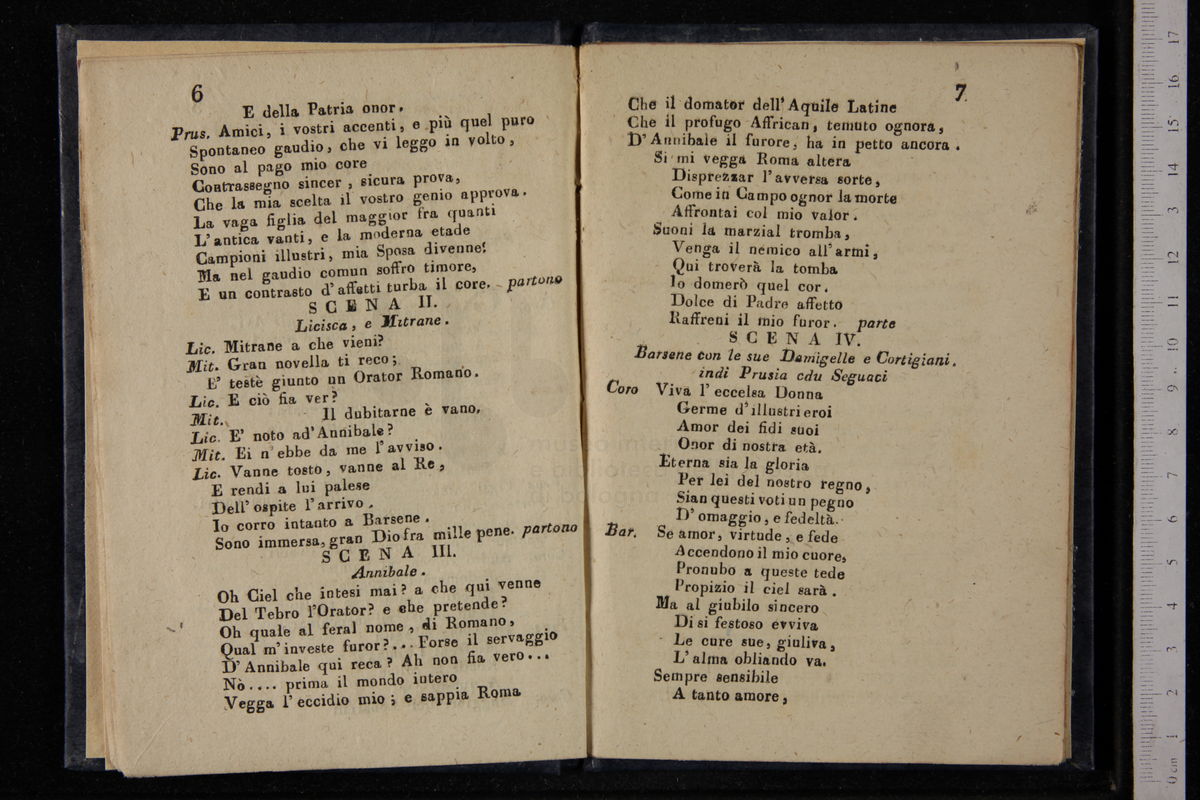 6
E della Patria onor.
Prus. Amici, i vostri accenti, e più quel puro
Spontaneo gaudio, che vi leggo in volto,
Sono al pago mio core
Contrassegno sincer, sicura prova,
Che la mia scelta il vostro genio approva.
La vaga figlia del maggior fra quanti
L'antica vanti, e la moderna etade
Campioni illustri, mia Sposa divenne!
Ma nel gaudio comun soffro timore,
E un contrasto d'affetti turba il core. partono
SCENA II.
Licisca, e Mitrane.
Lic. Mitrane a che vieni?
Mit. Gran novella ti reco;
E' testè giunto un Orator Romano.
Lic. E ciò fia ver?
Mit. Il dubitarne è vano.
Lic. E' noto ad'Annibale?
Mit. Ei n'ebbe da me l'avviso.
Lic. Vanne tosto, vanne al Re,
E rendi a lui palese
Dell'ospite l'arrivo.
Io corro intanto a Barsene.
Sono immersa, gran Dio fra mille pene. partono
SCENA III.
Annibale.
Oh Ciel che intesi mai? a che qui venne
Del Tebro l'Orator? e che pretende?
Oh quale al feral nome, di Romano,
Qual m'investe furor?... Forse il servaggio
D'Annibale qui reca? Ah non fia vero...
Nò.... prima il mondo intero
Vegga l'eccidio mio; e sappia Roma
7
Che il domator dell'Aquile Latine
Che il profugo Affrican, temuto ognora,
D'Annibale il furore, ha in petto ancora.
Si mi vegga Roma altera
Disprezzar l'avversa sorte,
Come in Campo ognor la morte
Affrontai col mio valor.
Suoni la marzial tromba,
Venga il nemico all'armi,
Qui troverà la tomba
Io domerò quel cor.
Dolce di Padre affetto
Raffreni il mio furor. parte
SCENA IV.
Barsene con le sue Damigelle e Cortigiani.
indi Prusia cdu Seguaci
Coro Viva l'eccelsa Donna
Germe d'illustri eroi
Amor dei fidi suoi
Onor di nostra età.
Eterna sia la gloria
Per lei del nostro regno,
Sian questi voti un pegno
D'omaggio, e fedeltà.
Bar. Se amor, virtude, e fede
Accendono il mio cuore,
Pronubo a queste tede
Propizio il ciel sarà.
Ma al giubilo sincero
Di si festoso evviva
Le cure sue, giuliva,
L'alma obliando va.
Sempre sensibile
A tanto amore,